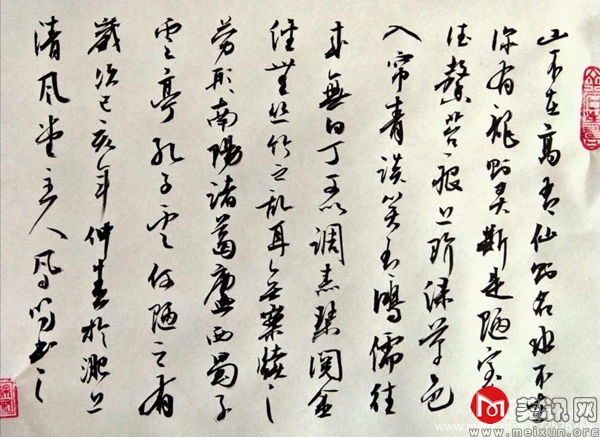 山不在高有仙則名水不在
深有龍則灵斯是陋室
德馨苔痕上階绿草色
入帘青談笑有鴻儒往
来無白丁可以調素琴閲金
经無丝竹之乱耳無案牘之
劳形南陽諸葛廬西蜀子
云亭孔子云何陋之有
歲次己亥年仲春於淝上
清風堂主人風書之
美讯网
www.meixun.org